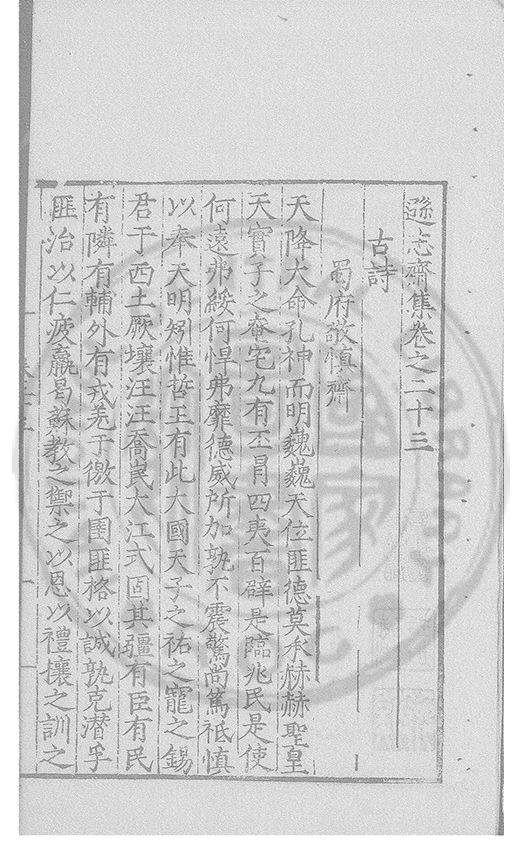 遜志齋集卷之二十三
古詩
蜀府敬慎齋
天降大命孔神而明巍巍天位匪德莫承赫赫聖皇
天寶子之奄宅九有丕冒四夷百辟是臨兆民是使
何遠弗綏何悍弗靡德威所加孰不震驚尚篤祗慎
以奉天明矧惟哲王有此大國天子之祐之寵之錫
君于西土厥壤汪汪喬岷大江式固其疆有臣有民
有隣有輔外有戎羌于徼于圉匪格以誠孰克潜孚
匪治以仁疲羸曷蘇教之禦之以恩以禮攘之訓之